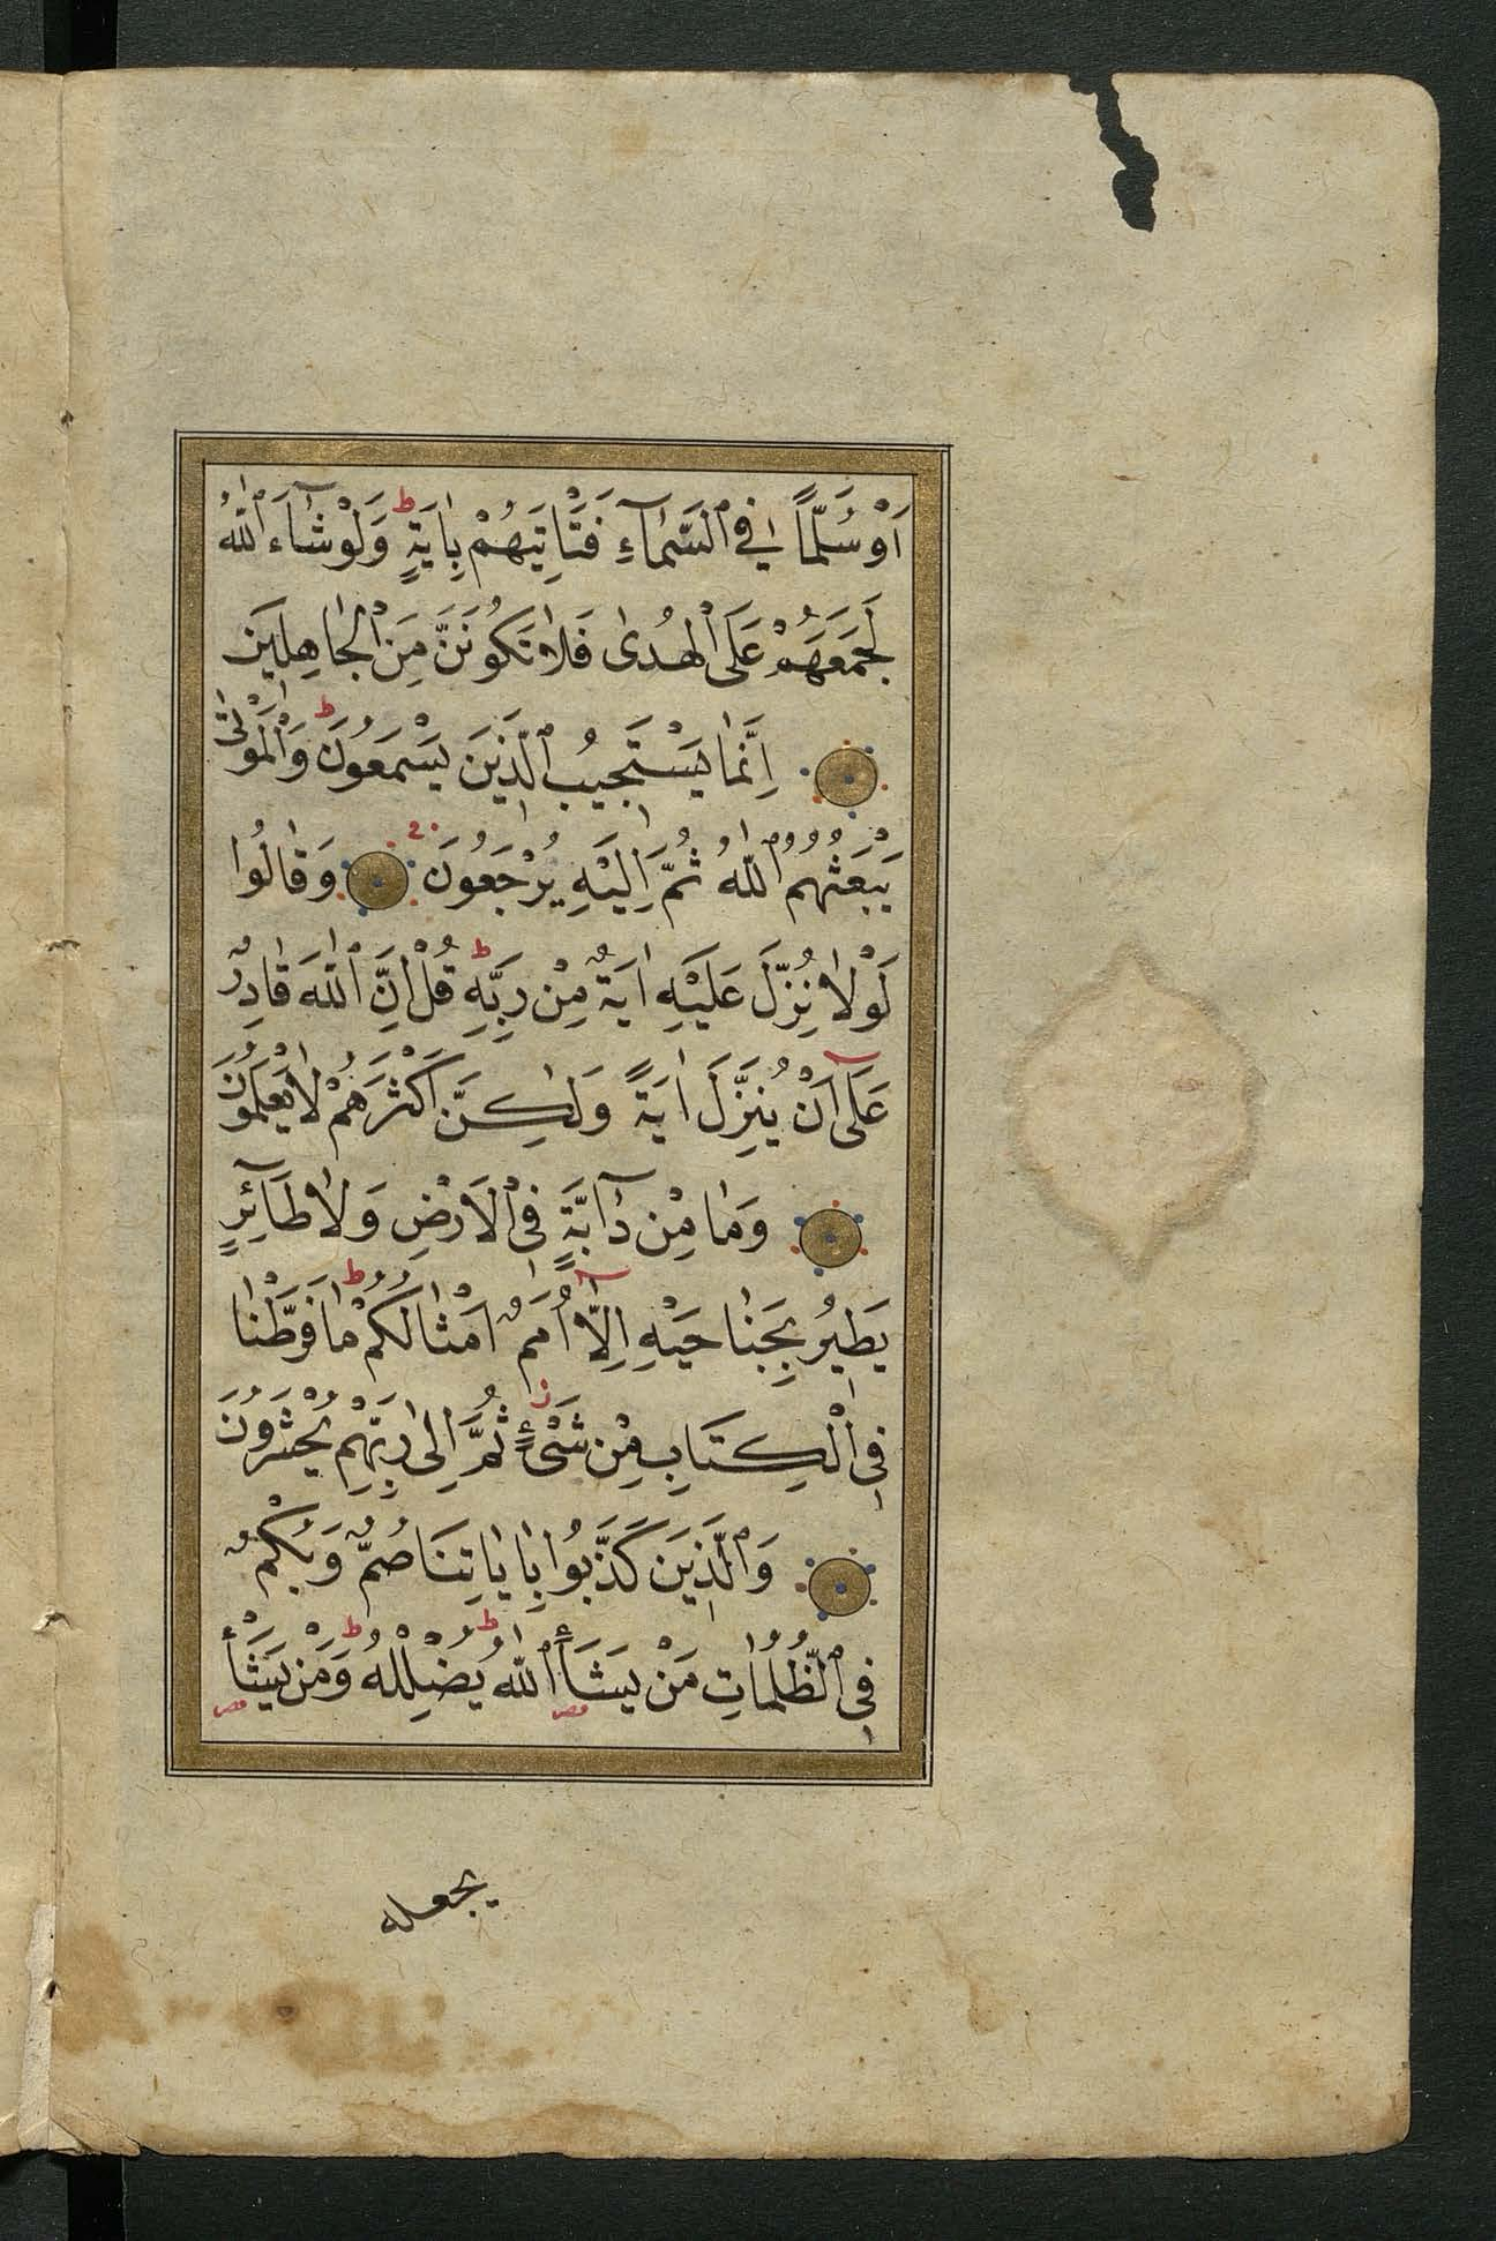 اَوْ سُلَّمًا فِي ٱلسَّمَآءِ فَتَأْتِيَهُمْ بِاٰيَةٍ ط وَلَوْ شَآءَ ٱللّٰهُ
لَجَمَعَهُمْ عَلَى ٱلْهُدٰى فَلَا تَكُونَنَّ مِنَ ٱلْجَاهِلِينَ
اِنَّمَا يَسْتَجِيبُ ٱلَّذِينَ يَسْمَعُونَ ط وَٱلْمَوْتٰى
يَبْعَثُهُمُ ٱللّٰهُ ثُمَّ اِلَيْهِ يُرْجَعُونَ وَقَالُوا
لَوْلَا نُزِّلَ عَلَيْهِ اٰيَةٌ مِنْ رَبِّهِ ط قُلْ اِنَّ ٱللّٰهَ قَادِرٌ
عَلٰٓى اَنْ يُنَزِّلَ اٰيَةً وَلٰكِنَّ اَكْثَرَهُمْ لَا يَعْلَمُونَ
وَمَا مِنْ دَآبَّةٍ فِي ٱلْاَرْضِ وَلَا طَآئِرٍ
يَطِيرُ بِجَنَاحَيْهِ اِلَّآ اُمَمٌ اَمْثَالُكُمْ ط مَا فَرَّطْنَا
فِي ٱلْكِتَابِ مِنْ شَيْءٍ ز ثُمَّ اِلٰى رَبِّهِمْ يُحْشَرُونَ
وَٱلَّذِينَ كَذَّبُوا بِاٰيَاتِنَا صُمٌّ وَبُكْمٌ
فِي ٱلظُّلُمَاتِ مَنْ يَشَأِ ٱللّٰهُ يُضْلِلْهُ ط وَمَنْ يَشَأْ
يجعله